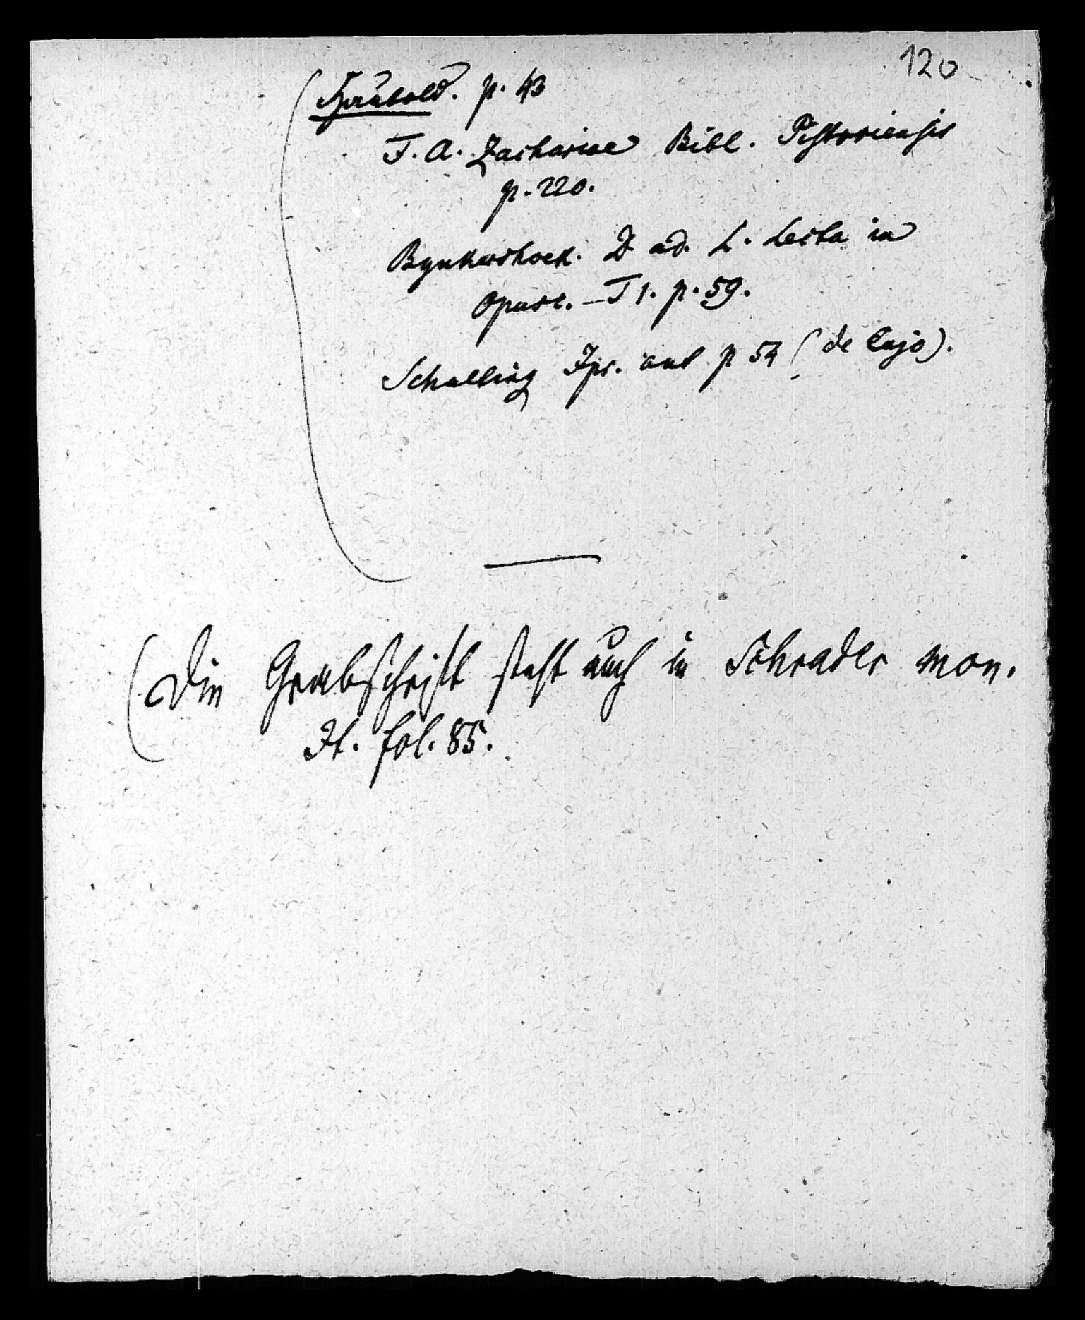 120
(Haubold. p. 43
F. A. Zachariae Bibl. Pistoriensis
p. 220.
Bynkershoek. D ad. L. Lecta in
Opusc. — T 1. p. 59.
Schulting Jpr. ant. p 54 (de Cujo).
(Die Grabschrift steht auch in Schrader mon.
It. fol. 85.